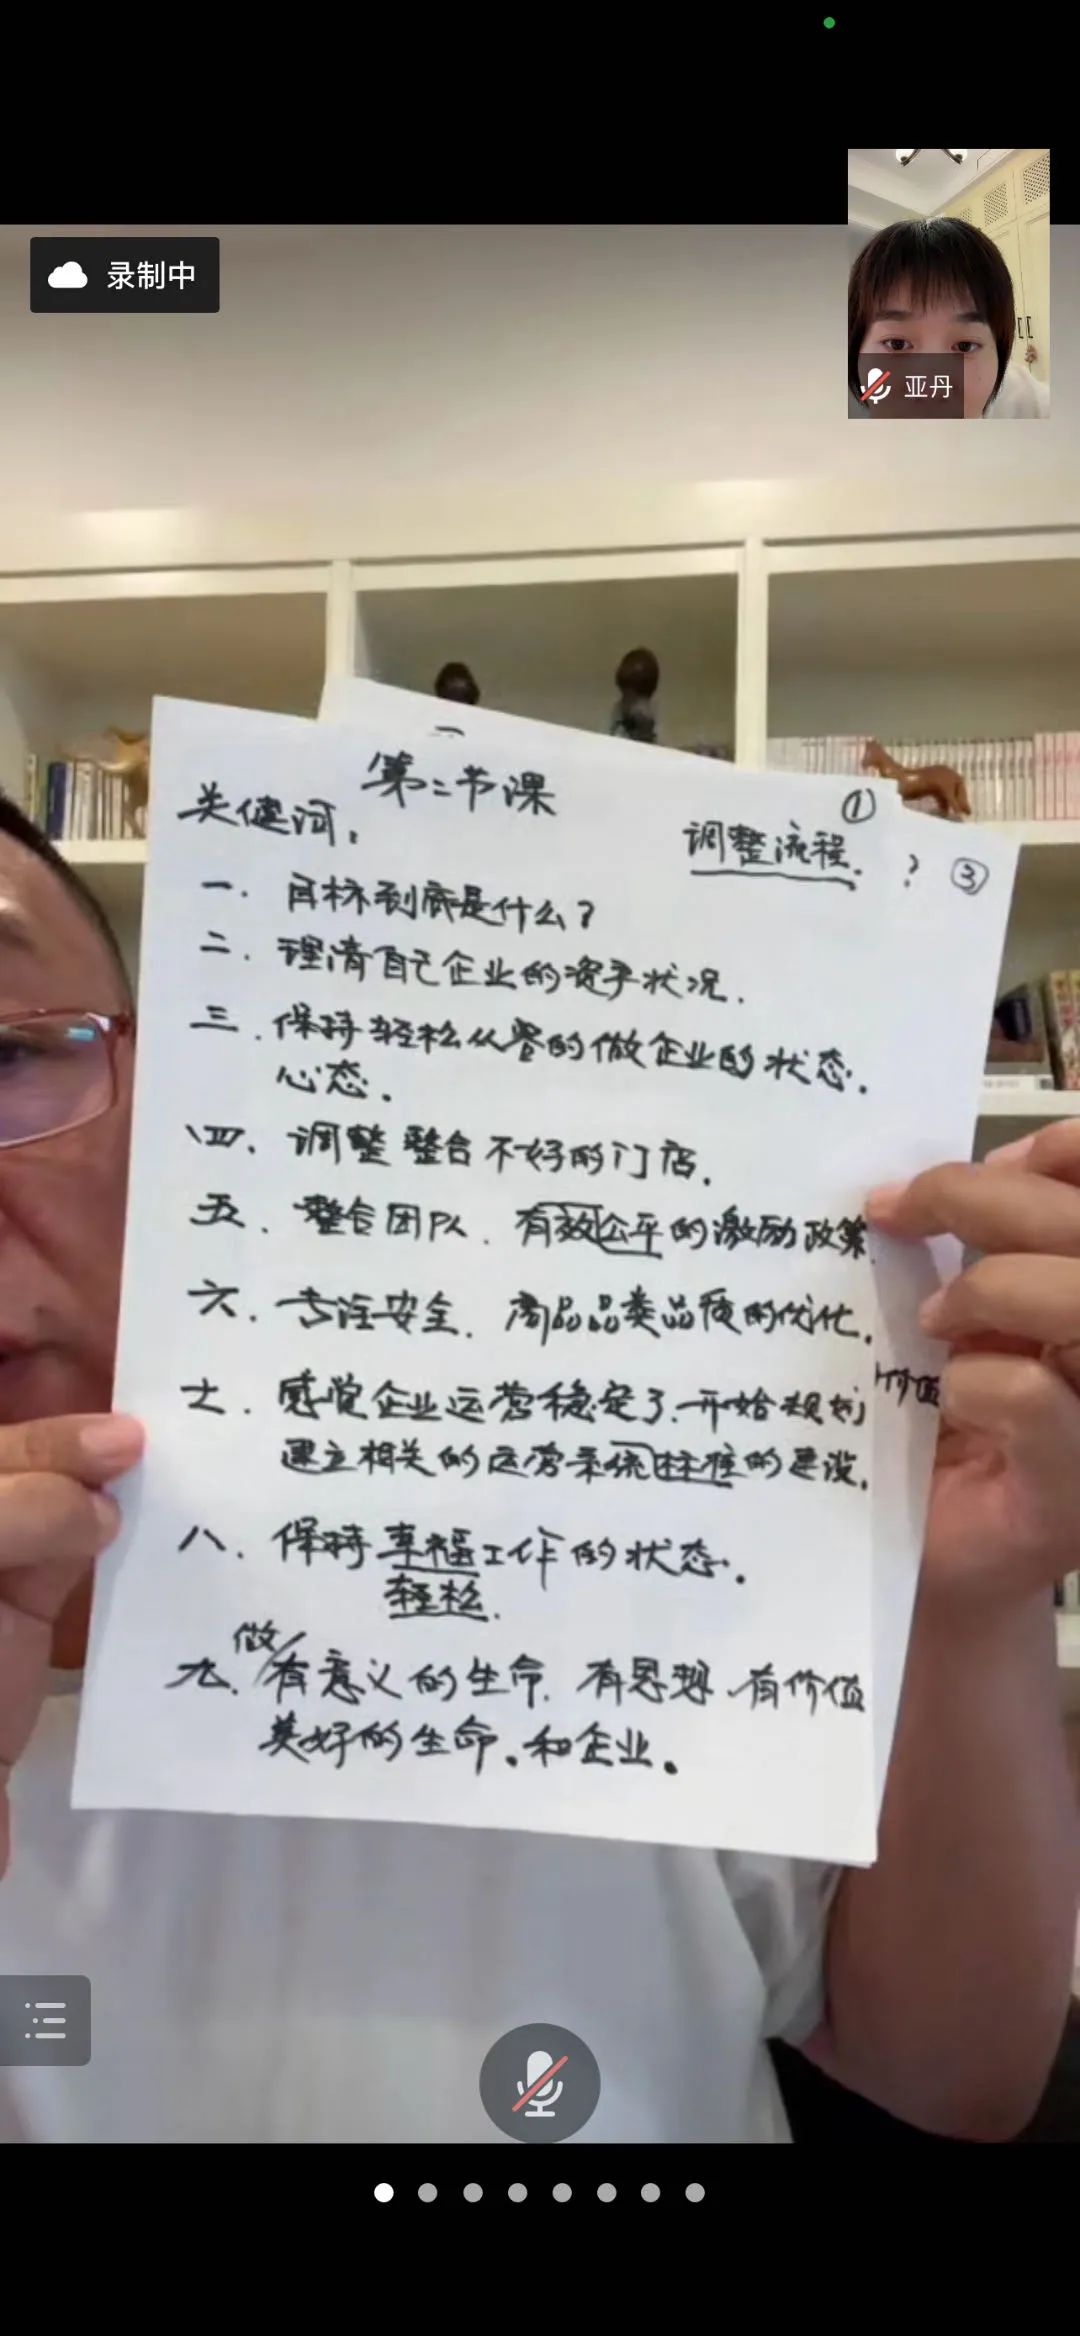 录制中
亚丹
第二节课
①
关键词:
调整流程.
? ③
一. 目标到底是什么?
二. 理清自己企业的资产状况.
三. 保持轻松从容的做企业的状态.
心态.
四. 调整 整合不好的门店.
五. 整合团队. 有效公平的激励政策.
六. 专注安全. 商品品类品质的优化.
价值
七. 感觉企业运营稳定了.开始规划
建立相关的运营系统标准的建设.
八. 保持幸福工作的状态.
轻松.
做
九. 有意义的生命. 有思想、有价值
美好的生命。和企业。